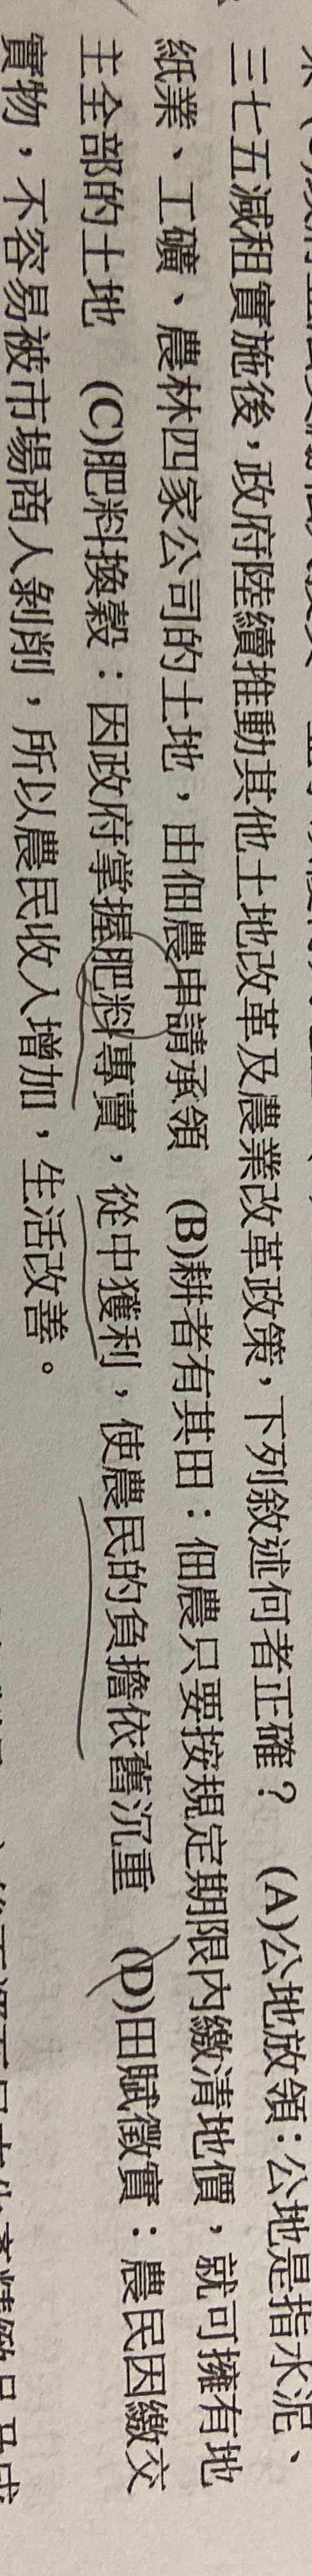 三七五減租實施後，政府陸續推動其他土地改革及農業改革政策，下列敘述何者正確？　(A)公地放領：公地是指水泥、
紙業、工礦、農林四家公司的土地，由佃農申請承領　(B)耕者有其田：佃農只要按規定期限內繳清地價，就可擁有地
主全部的土地　(C)肥料換穀：因政府掌握肥料專賣，從中獲利，使農民的負擔依舊沉重　(D)田賦徵實：農民因繳交
實物，不容易被市場商人剝削，所以農民收入增加，生活改善。